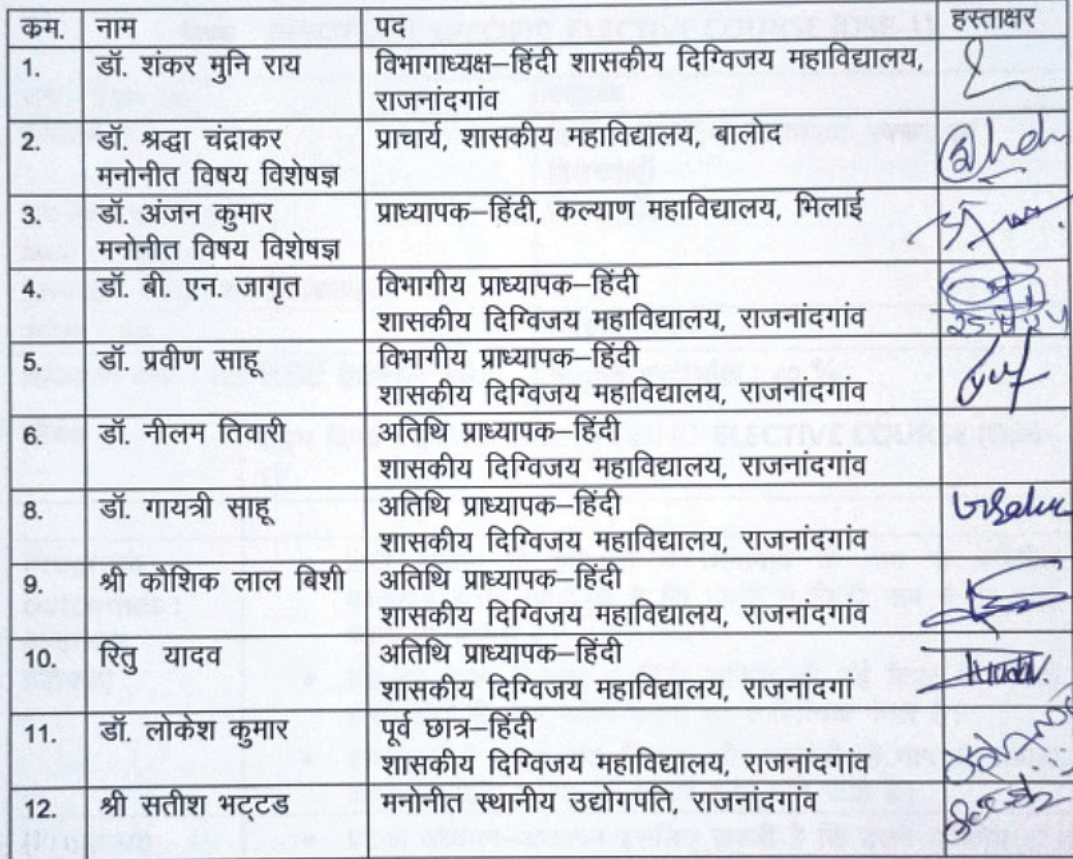 कम. नाम पद हस्ताक्षर
1. डॉ. शंकर मुनि राय विभागाध्यक्ष–हिंदी शासकीय दिग्विजय महाविद्यालय,
राजनांदगांव
2. डॉ. श्रद्धा चंद्राकर प्राचार्य, शासकीय महाविद्यालय, बालोद
मनोनीत विषय विशेषज्ञ
3. डॉ. अंजन कुमार प्राध्यापक–हिंदी, कल्याण महाविद्यालय, भिलाई
मनोनीत विषय विशेषज्ञ
4. डॉ बी. एन. जागृत विभागीय प्राध्यापक–हिंदी
शासकीय दिग्विजय महाविद्यालय, राजनांदगांव
5. डॉ. प्रवीण साहू विभागीय प्राध्यापक–हिंदी
शासकीय दिग्विजय महाविद्यालय, राजनांदगांव
6. डॉ. नीलम तिवारी अतिथि प्राध्यापक–हिंदी
शासकीय दिग्विजय महाविद्यालय, राजनांदगांव
8. डॉ. गायत्री साहू अतिथि प्राध्यापक–हिंदी
शासकीय दिग्विजय महाविद्यालय, राजनांदगांव
9. श्री कौशिक लाल बिशी अतिथि प्राध्यापक–हिंदी
शासकीय दिग्विजय महाविद्यालय, राजनांदगांव
10. रितु यादव अतिथि प्राध्यापक–हिंदी
शासकीय दिग्विजय महाविद्यालय, राजनांदगां
11. डॉ. लोकेश कुमार पूर्व छात्र–हिंदी
शासकीय दिग्विजय महाविद्यालय, राजनांदगांव
12. श्री सतीश भट्टड मनोनीत स्थानीय उद्योगपति, राजनांदगांव